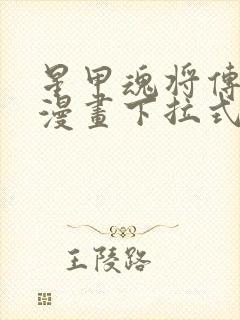 星甲魂将傳
漫畫下拉式
王陵路